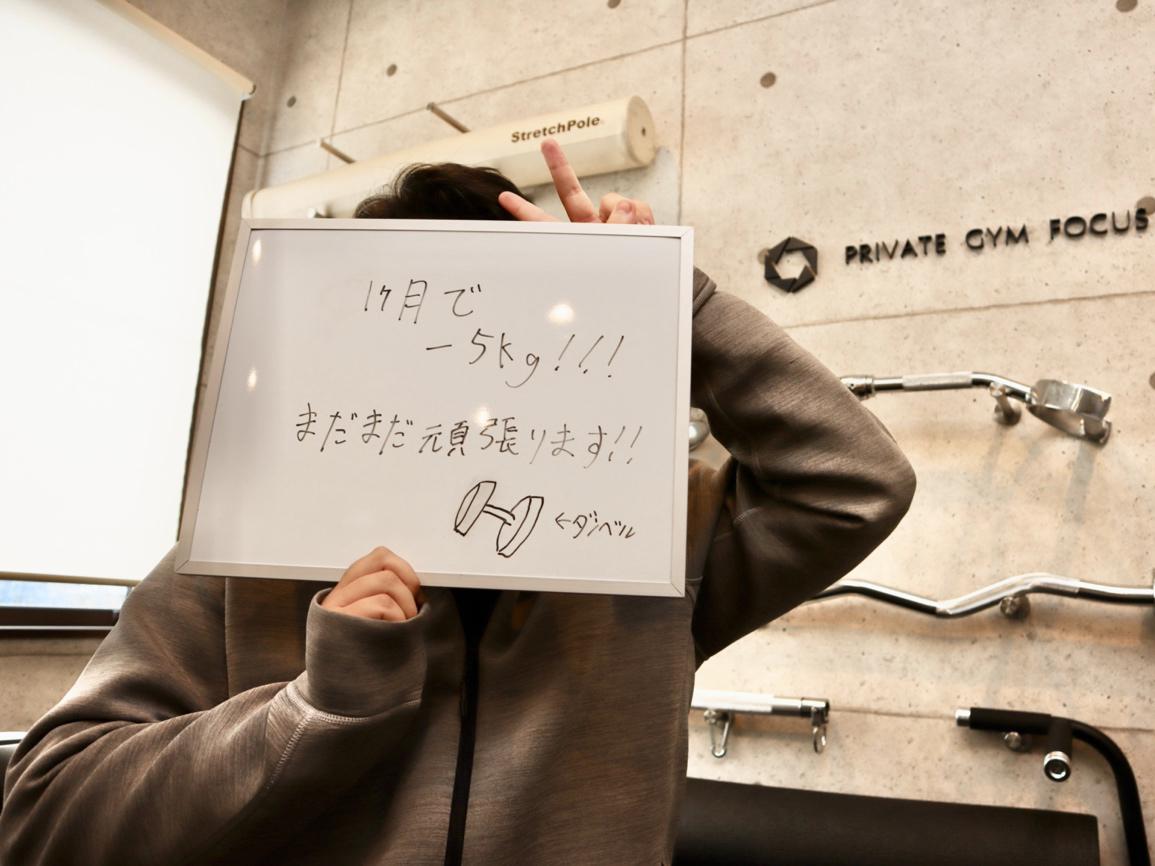 StretchPole
PRIVATE GYM FOCUS
1ヶ月で
-5kg!!!
まだまだ頑張ります!!
←ダンベル